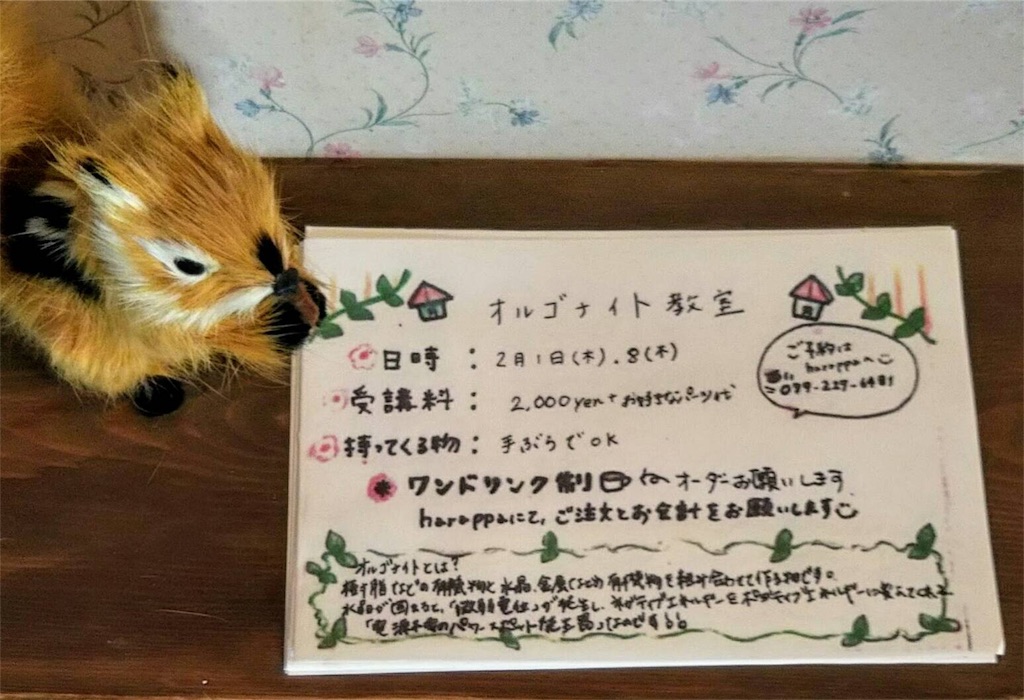 オルゴナイト教室
ご予約は
harappaへ
099-227-6481
日時：2月1日(木).8(木)
受講料：2,000yen+お好きなパーツ代
持ってくる物：手ぶらでOK
ワンドリンク制 オーダーお願いします
harappaにて、ご注文とお会計をお願いします
オルゴナイトとは？
樹脂などの有機物と水晶、金属などの無機物を組み合わせて作る物です。
水晶が固まると、「微弱電位」が発生し、ネガティブエネルギーをポジティブエネルギーに変えてくれる
「電源不要のパワースポット発生器」なのです